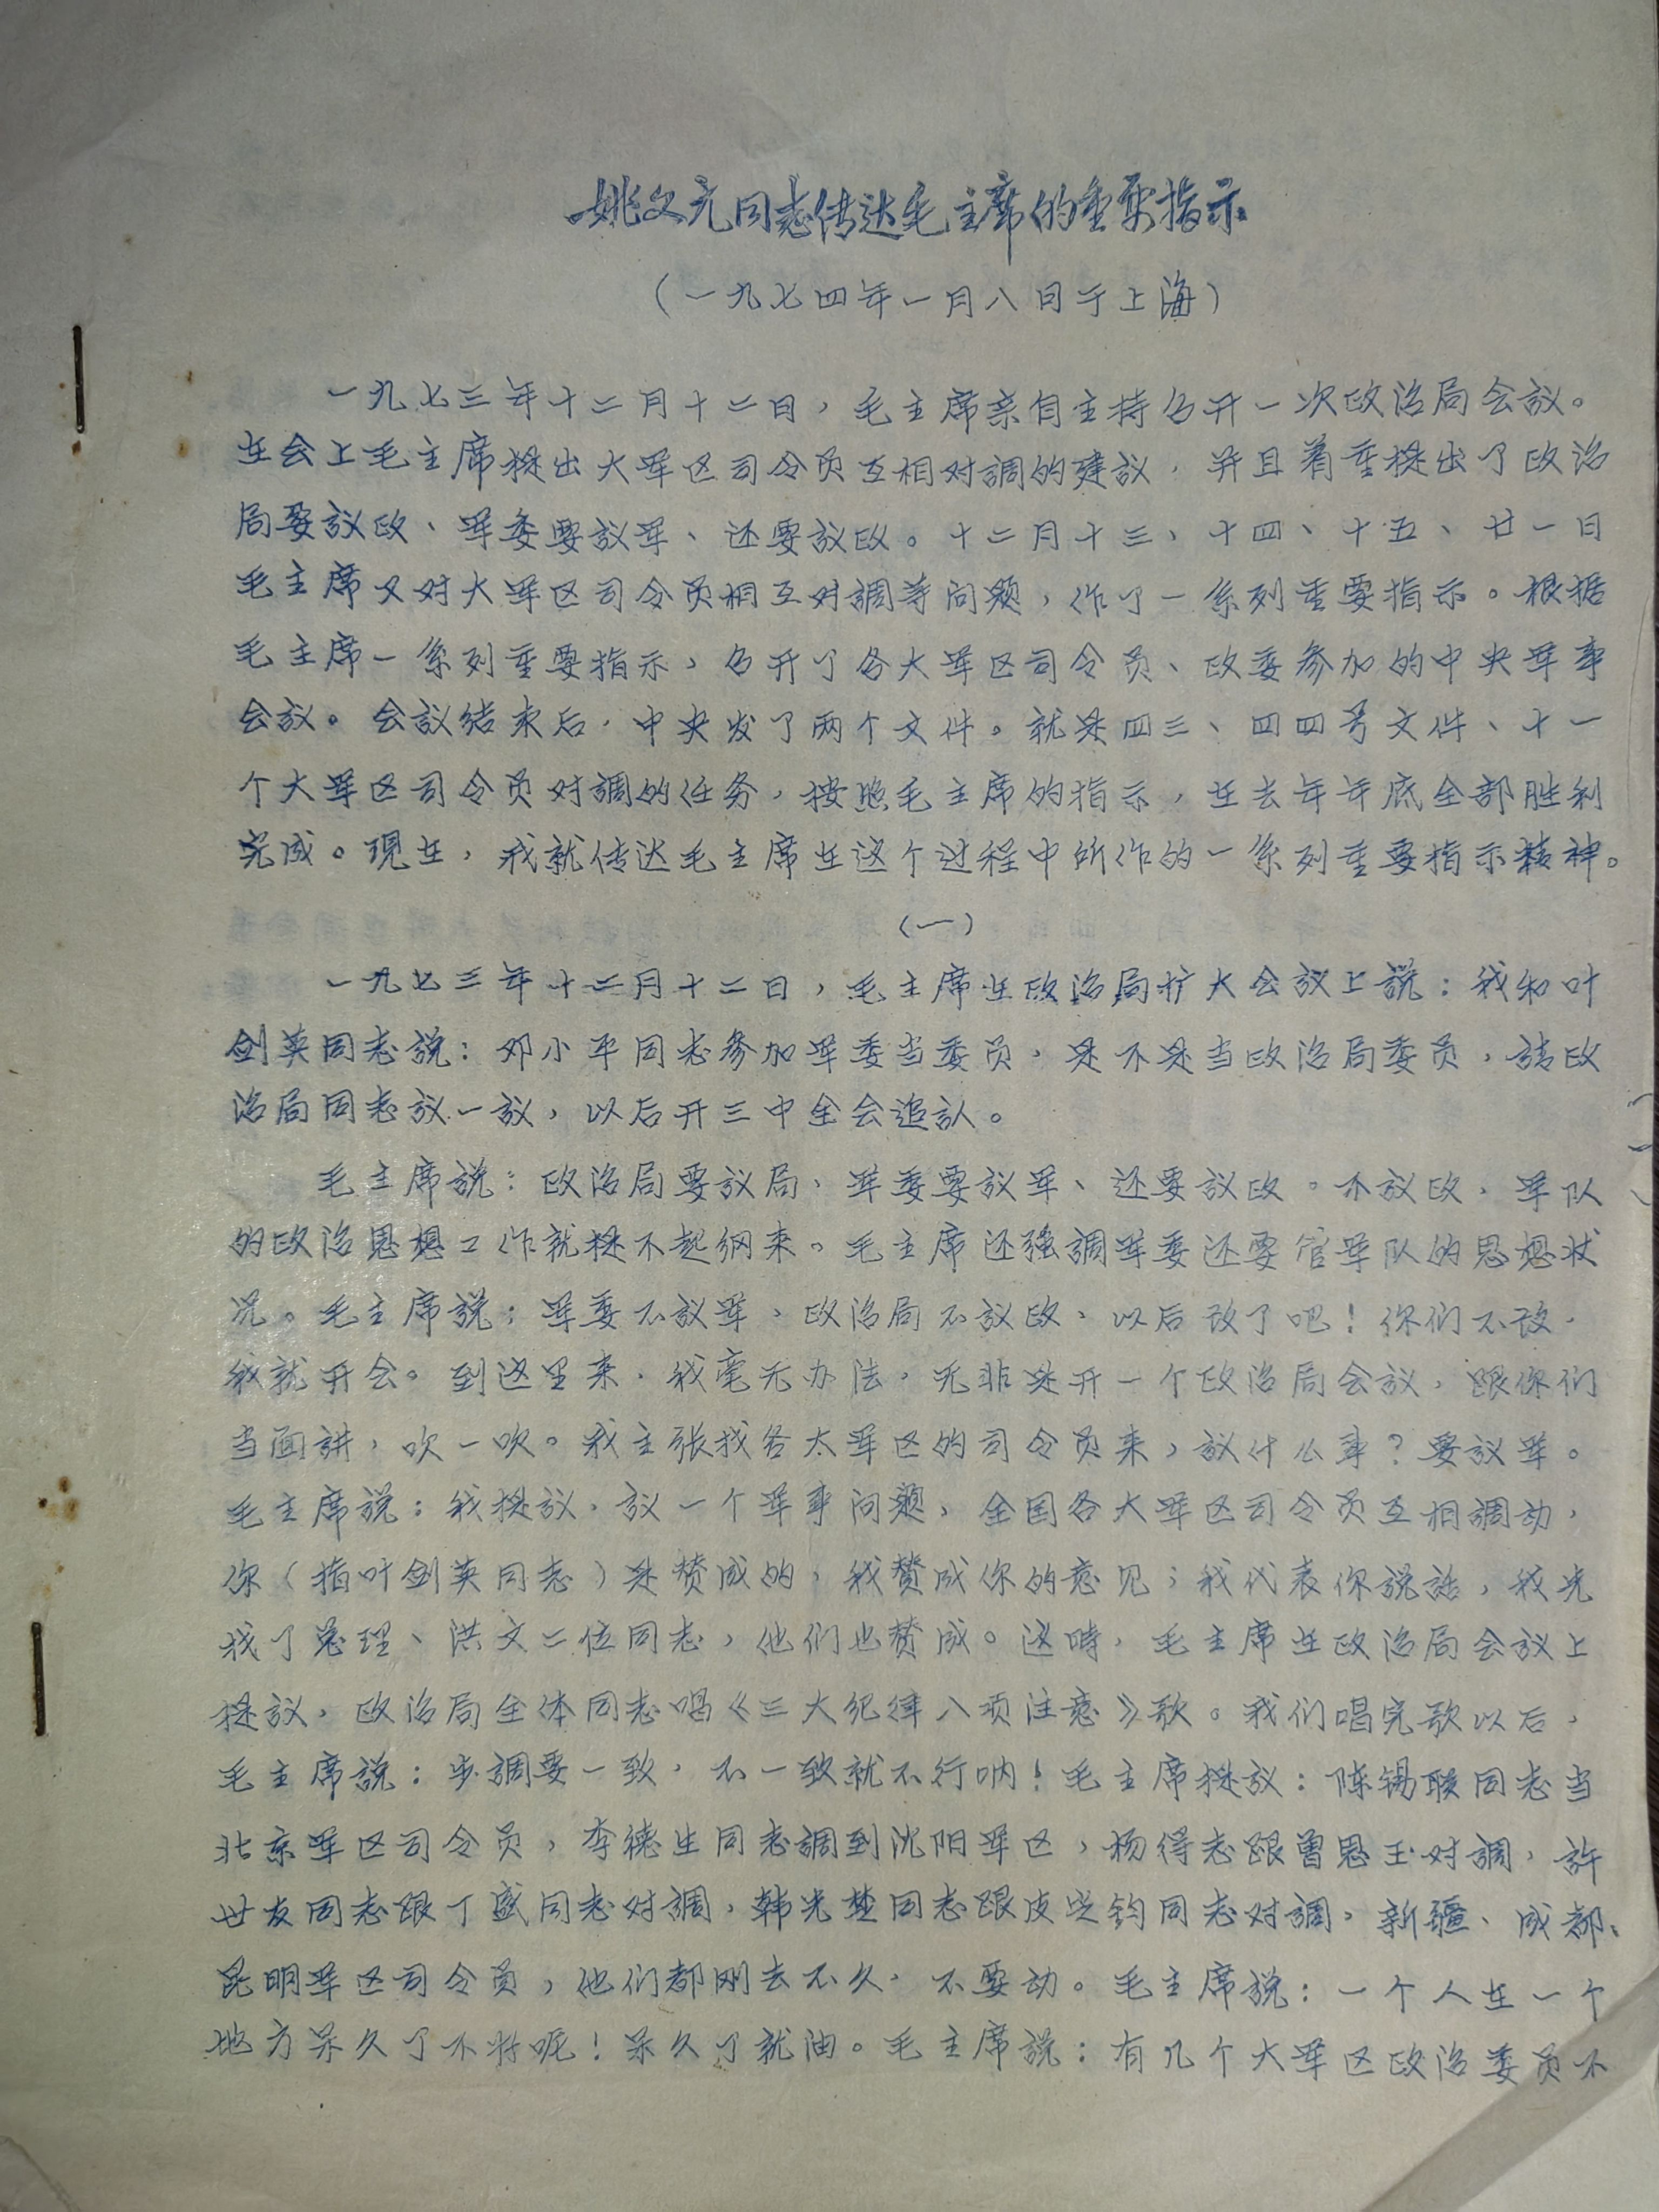 姚文元同志传达毛主席的重要指示
（一九七四年一月八日于上海）
一九七三年十二月十二日，毛主席亲自主持召开一次政治局会議。
在会上毛主席提出大军区司令员互相对調的建議，并且着重提出了政治
局要議政、军委要議军、还要議政。十二月十三、十四、十五、廿一日
毛主席又对大军区司令员相互对調等问题，作了一系列重要指示。根据
毛主席一系列重要指示，召开了各大军区司令员、政委参加的中央军事
会議。会議结束后，中央发了两个文件。就是四三、四四号文件、十一
个大军区司令员对調的任务，按照毛主席的指示，在去年年底全部胜利
完成。現在，我就传达毛主席在这个过程中所作的一系列重要指示精神。
（一）
一九七三年十二月十二日，毛主席在政治局扩大会議上說：我和叶
剑英同志說：邓小平同志参加军委当委员，是不是当政治局委员，請政
治局同志議一議，以后开三中全会追认。
毛主席說：政治局要議局、军委要議军、还要議政。不議政，军队
的政治思想工作就提不起纲来。毛主席还强調军委还要管军队的思想状
况。毛主席說：军委不議军，政治局不議政，以后改了吧！你们不改，
我就开会。到这里来，我毫无办法，无非是开一个政治局会議，跟你们
当面讲，吹一吹。我主张找各大军区的司令员来，議什么事？要議军。
毛主席說：我提議，議一个军事问题，全国各大军区司令员互相調动，
你（指叶剑英同志）是赞成的，我赞成你的意见；我代表你說話，我先
找了总理、洪文二位同志，他们也赞成。这時，毛主席在政治局会議上
提議，政治局全体同志唱《三大纪律八项注意》歌。我们唱完歌以后，
毛主席說：步調要一致，不一致就不行呐！毛主席提議：陈锡联同志当
北京军区司令员，李德生同志調到沈阳军区，杨得志跟曾思玉对調，許
世友同志跟丁盛同志对調，韩先楚同志跟皮定钧同志对調，新疆、成都、
昆明军区司令员，他们都刚去不久，不要动。毛主席說：一个人在一个
地方呆久了不行呢！呆久了就油。毛主席說：有几个大军区政治委员不